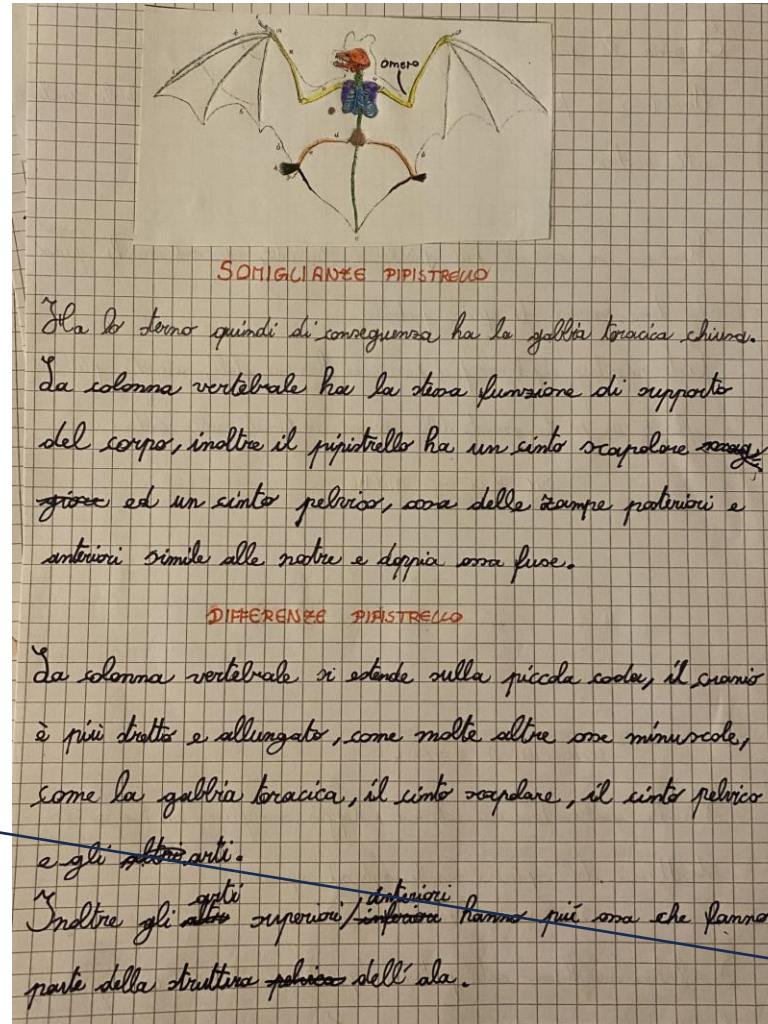 omero
SOMIGLIANZE PIPISTRELLO
Ha lo sterno quindi di conseguenza ha la gabbia toracica chiusa.
La colonna vertebrale ha la stessa funzione di supporto
del corpo, inoltre il pipistrello ha un cinto scapolare
ed un cinto pelvico, ossa delle zampe posteriori e
anteriori simile alle nostre e doppia ossa fuse.
DIFFERENZE PIPISTRELLO
La colonna vertebrale si estende sulla piccola coda, il cranio
è più stretto e allungato, come molte altre osse minuscole,
come la gabbia toracica, il cinto scapolare, il cinto pelvico
e gli altro arti.
arti anteriori
Inoltre gli altro superiori/inferiori hanno più ossa che fanno
parte della struttura pelvica dell'ala.